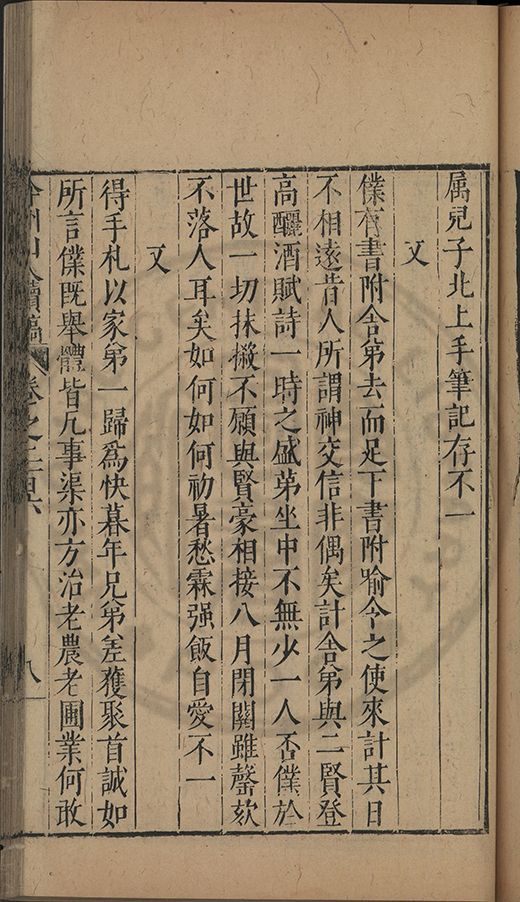 属兒子北上手筆記存不一
又
僕有書附舍弟去而足下書附喻令之使來計其日
不相遠昔人所謂神交信非偶矣計舍弟與二賢登
高釃酒賦詩一時之盛弟坐中不無少一人否僕於
世故一切抹摋不願與賢豪相接八月閉關雖謦欬
不落人耳矣如何如何初暑愁霖强飯自愛不一
又
得手札以家弟一歸爲快暮年兄弟差獲聚首誠如
所言僕旣舉體皆凡事渠亦方治老農老圃業何敢
弇州山人續稿 卷之二百六 八